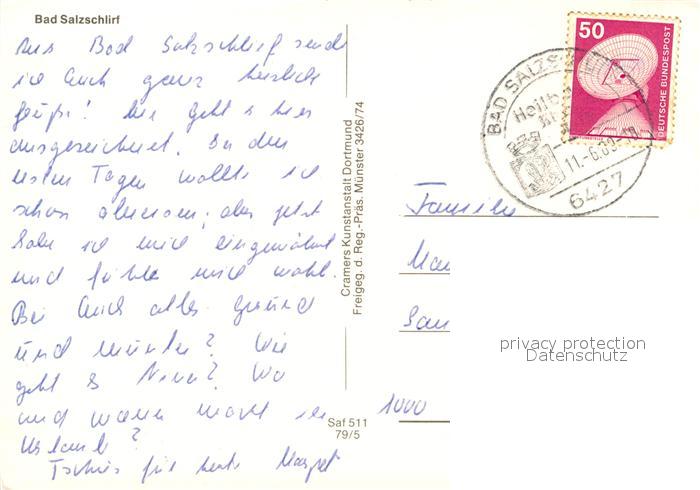 Bad Salzschlirf
Aus Bad Salzschlirf sende
ich Euch ganz herzliche
Grüße! Mir geht s hier
ausgezeichnet. In den
ersten Tagen wollte ich
schon abreisen; aber jetzt
habe ich mich eingewöhnt
und fühle mich wohl.
Bei Euch alles gesund
und munter? Wie
geht s Wo
und wann macht ihr
Urlaub?
Tschüs für heute Margret
Cramers Kunstanstalt Dortmund
Freigeg. d. Reg.-Präs. Münster 3426/74
Saf 511
79/5
50
DEUTSCHE BUNDESPOST
BAD SALZS
Heilb
11.-6.80
6427
Familie
1000
privacy protection
Datenschutz